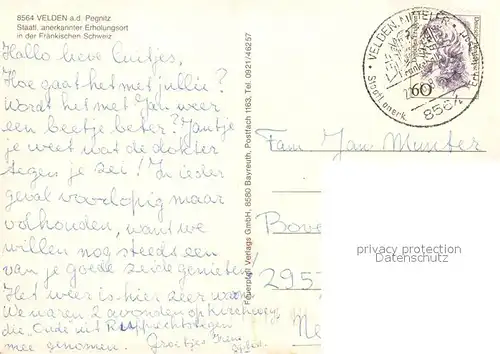 8564 VELDEN a.d. Pegnitz
Staatl. anerkannter Erholungsort
in der Fränkischen Schweiz
Hallo lieve Luitjes,
Hoe gaat het met jullie?
Wordt het met Jan weer
een beetje beter? Jantje
je weet wat de dokter
tegen je zei! In ieder
geval voorlopig maar
volhouden, want we
willen nog steeds een
van je goede zijde genieten!
Het weer is hier zeer warm
We waren 2 avonden op
die Oude uit
mee genomen. Groetjes Irene
Feuerpfeil Verlags GmbH, 8580 Bayreuth, Postfach 1163, Tel. 0921/46257
VELDEN MITTELFR.
Staatl. anerk.
8564
60
Deutsche Bundespost
Fam Jan Munter
Bove
295
Ne
privacy protection
AKPOOL.DE